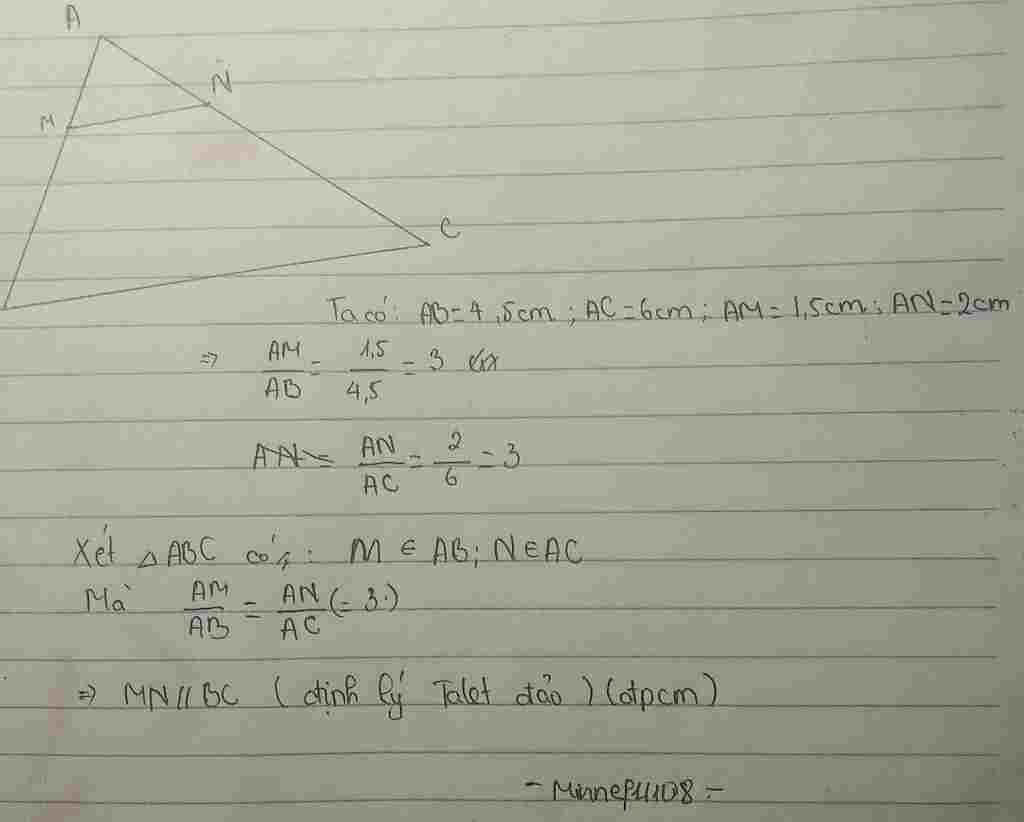 A
N
M
C
Ta có: AB=4,5cm; AC=6cm; AM=1,5cm; AN=2cm
=> AM/AB = 1,5/4,5 = 3
AN = AN/AC = 2/6 = 3
Xét △ABC có: M ∈ AB; N ∈ AC
Mà AM/AB = AN/AC (= 3.)
=> MN//BC (định lý Talet đảo) (đpcm)